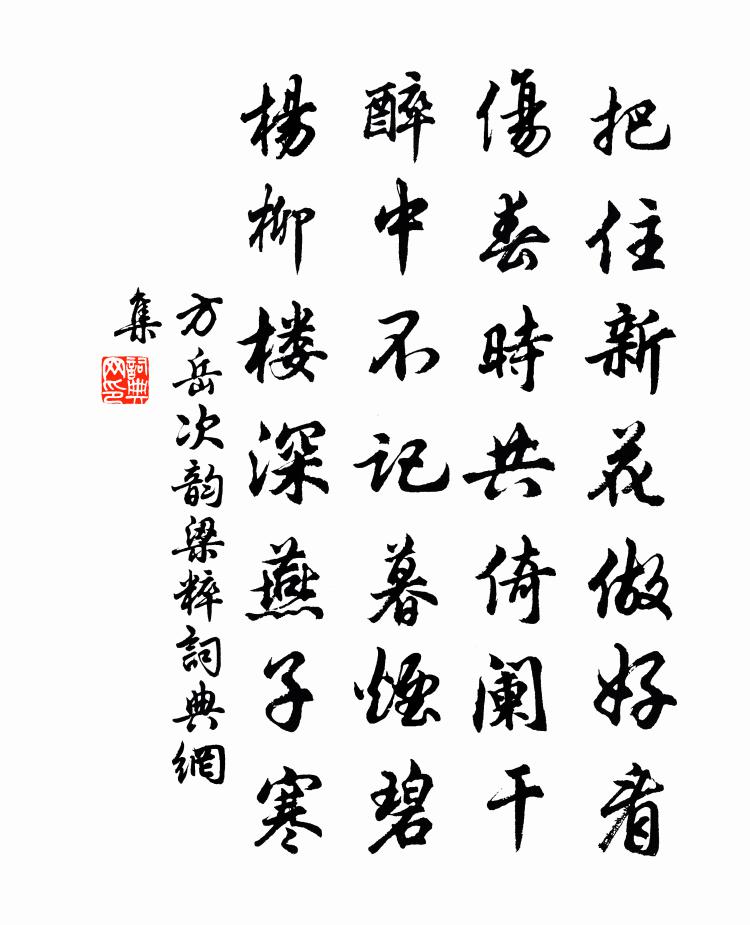 把住新花做好看
傷春時共倚阑干
醉中不记暮煙碧
楊柳楼深燕子寒
方岳次韵梁粹詞典網
集
詞典
网印